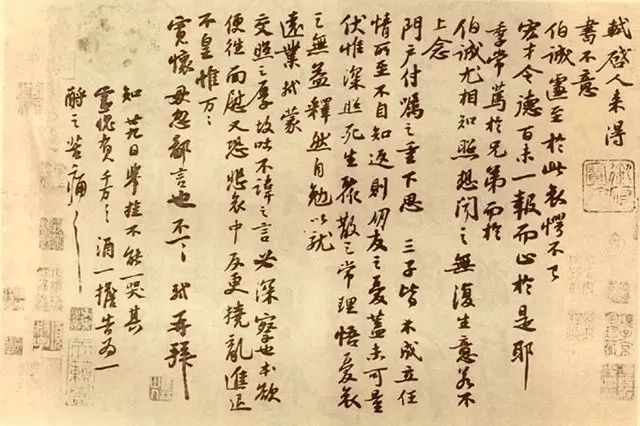 軾啓人來得
書不意
伯誠遽至於此哀愕不已
宏才令德百未一報而止於是耶
季常篤於兄弟而於
伯誠尤相知照想聞之無復生意若不
上念
門戶付囑之重下思三子皆未成立任
情所至不自知返則朋友之憂蓋未可量
伏惟深照死生聚散之常理悟憂哀
之無益釋然自勉以就
遠業軾蒙
交照之厚故吐不諱之言必深察也本欲
便往面慰又恐悲哀中反更撓亂進退
不皇惟萬〻
寬懷毋忽鄙言也不一〻軾再拜
知廿九日舉掛不能一哭其
靈愧負千萬〻酒一擔告為一
酹之苦痛〻